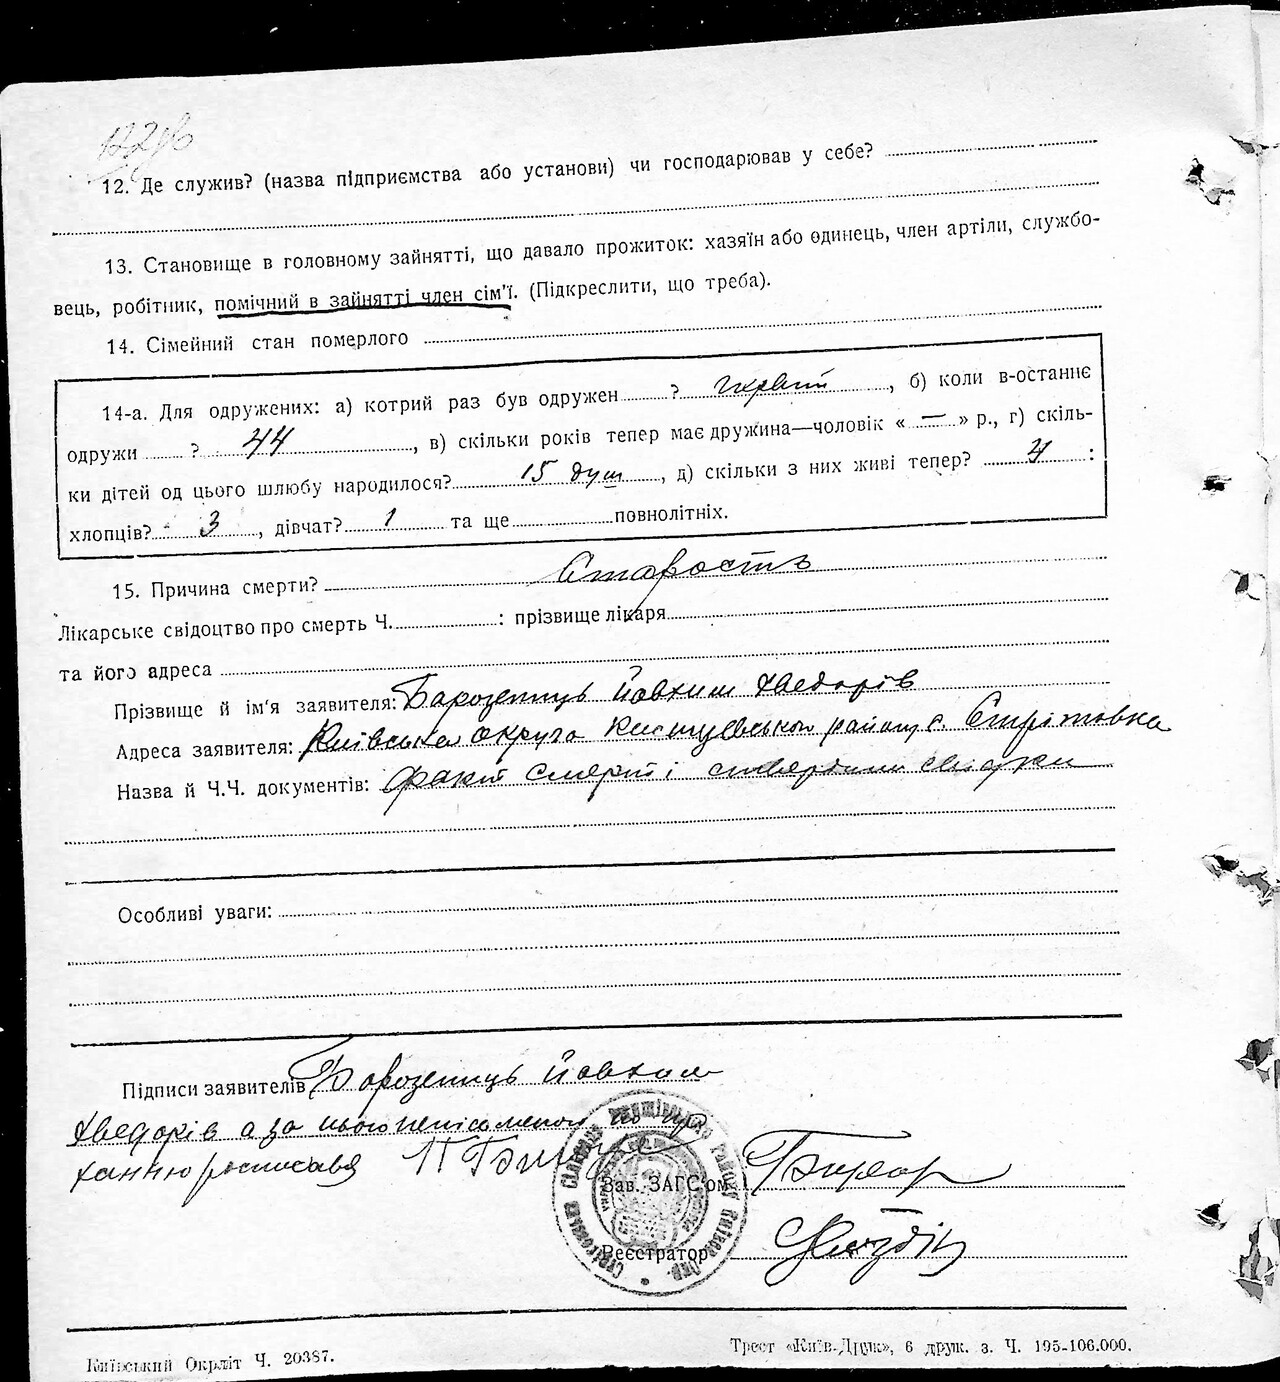 12. Де служив? (назва підприємства або установи) чи господарював у себе?
13. Становище в головному зайнятті, що давало прожиток: хазяїн або одинець, член артіли, службо-
вець, робітник, помічний в зайнятті член сім'ї. (Підкреслити, що треба).
14. Сімейний стан померлого
14-а. Для одружених: а) котрий раз був одружен ? первий, б) коли в-останнє
одружи ? 44, в) скільки років тепер має дружина—чоловік « — » р., г) скіль-
ки дітей од цього шлюбу народилося? 15 душ, д) скільки з них живі тепер? 4 :
хлопців? 3, дівчат? 1 та ще повнолітніх.
15. Причина смерти? Старость
Лікарське свідоцтво про смерть Ч. : прізвище лікаря
та його адреса
Прізвище й ім'я заявителя: Йовхим Хведорів
Адреса заявителя: Київська округа району с. Стрітовка
Назва й Ч.Ч. документів: факт смерті ствердили свидки
Особливі уваги:
Підписи заявителів Йовхим
Хведорів а за нього неписьменого по про
ханню росписався
Зав. ЗАГС'ом
Реєстратор
Київський Окрліт Ч. 20387.
Трест «Київ-Друк», 6 друк. з. Ч. 195-106.000.